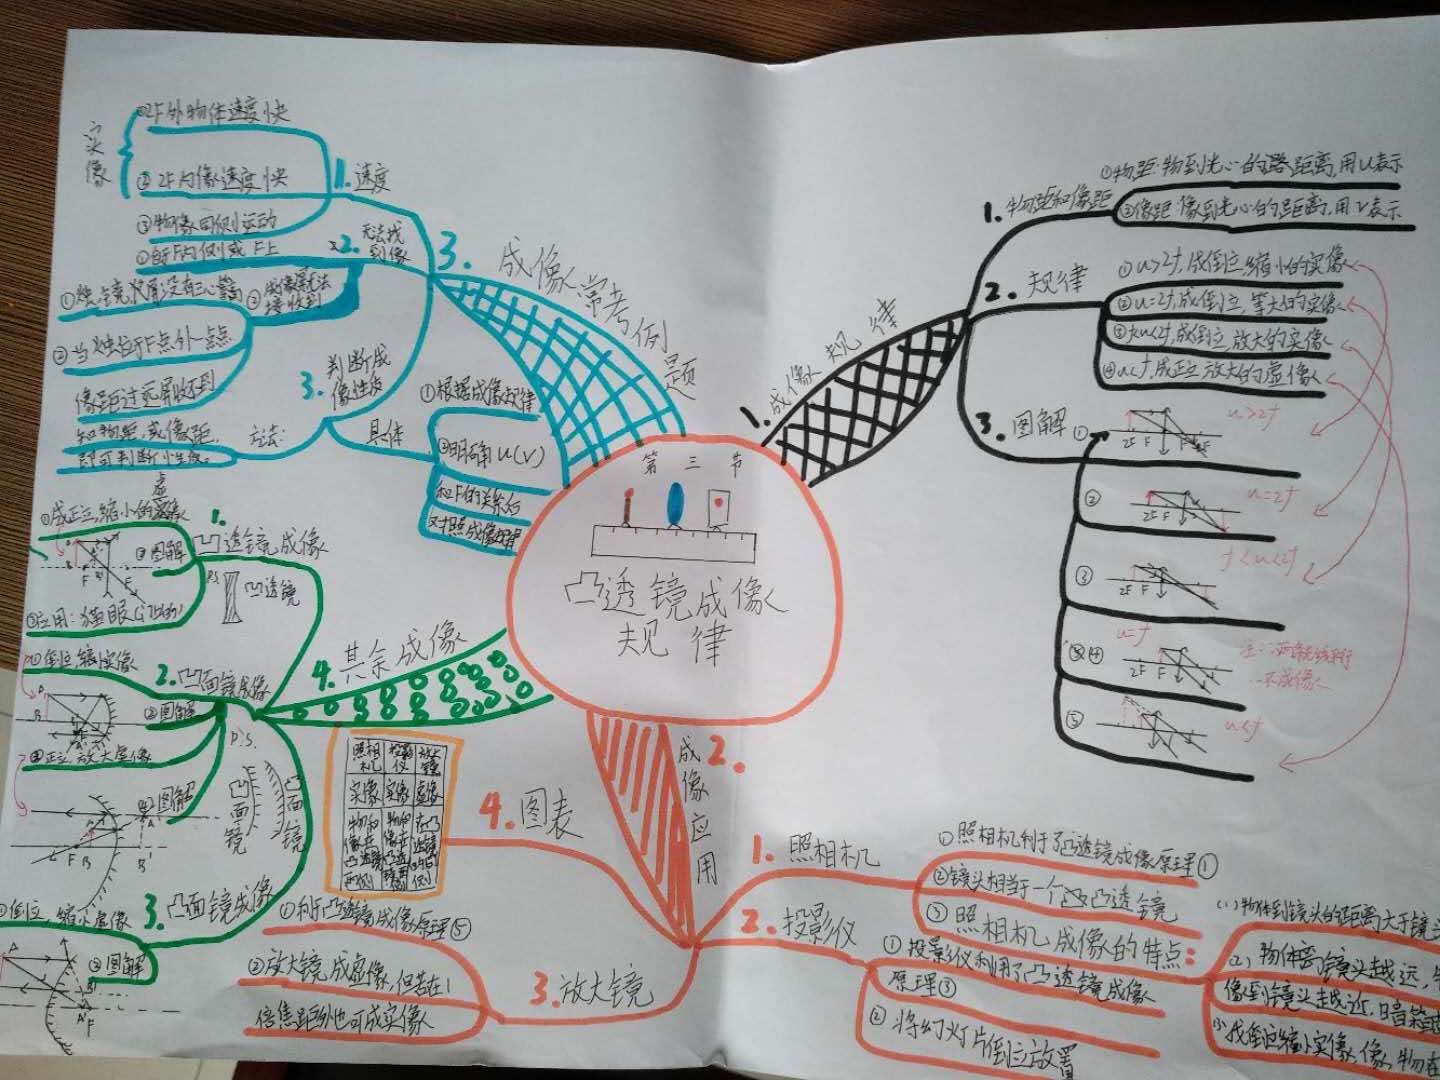 第三节
凸透镜成像
规律
1.成像规律
1.物距和像距
①物距:物到光心的路距离,用u表示
②像距 像到光心的距离,用v表示
2.规律
①u>2f,成倒立缩小的实像
②u=2f,成倒立,等大的实像
成倒立,放大的实像
④u<f,成正立放大的虚像
3.图解
① 2F F u>2f
② 2F F u=2f
③ 2F F f<u<2f
④ 2F F u=f
不成像
⑤ u<f
2.成像应用
1.照相机
①照相机利于了凸透镜成像原理①
②镜头相当于一个凸透镜
③照相机成像的特点:
(1)物体到镜头的距离大于镜头
(2)物体离镜头越远,
像到镜头越近,暗箱越
(3)成倒立缩小实像,像,物在
2.投影仪
①投影仪利用了凸透镜成像
原理③
②将幻灯片倒立放置
3.放大镜
①利于凸透镜成像原理⑤
②放大镜成虚像,但若在1
倍焦距外也可成实像
4.图表
照相机 投影仪 放大镜
实像 实像 虚像
3.成像常考例题
1.速度
实像
①2F外物体速度快
②2F内像速度快
③物像同侧运动
2.无法找到像
①在F内侧或F上
②成像无法接收到
①烛,镜,尺屏没有三心等高
②当烛位于F点外一点点
像距过远屏收不到
3.判断成像性质
方法:
知物距,或像距,
即可判断小性质。
具体
①根据成像规律
②明确u(v)
和F的关系后
对照成像规律
4.其余成像
1.凹透镜成像
P.S. 凹透镜
①成正立,缩小的虚像
②图解
③应用:猫眼
2.凹面镜成像
①倒立,缩小实像
②图解
③正立,放大虚像
④图解
P.S.
凹面镜
凸面镜
3.凸面镜成像
缩小虚像
②图解